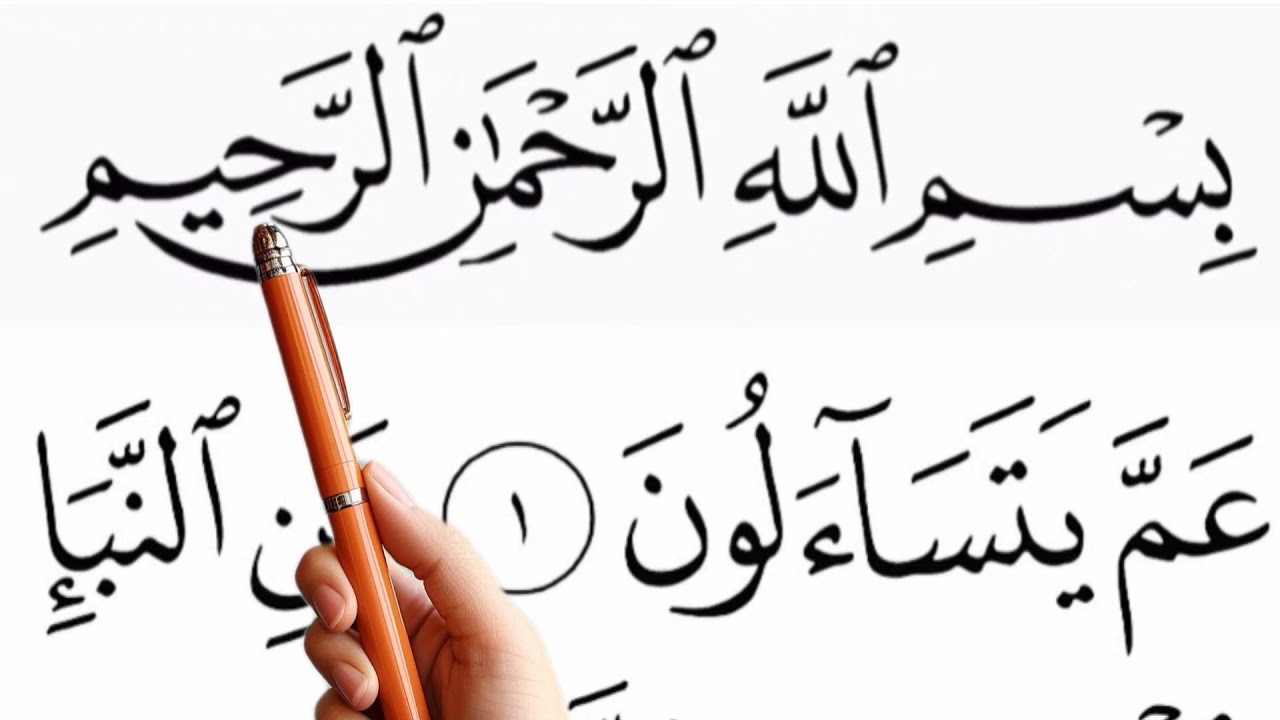 بِسْمِ ٱللَّهِ ٱلرَّحْمَٰنِ ٱلرَّحِيمِ
عَمَّ يَتَسَآءَلُونَ ١ عَنِ ٱلنَّبَإِ